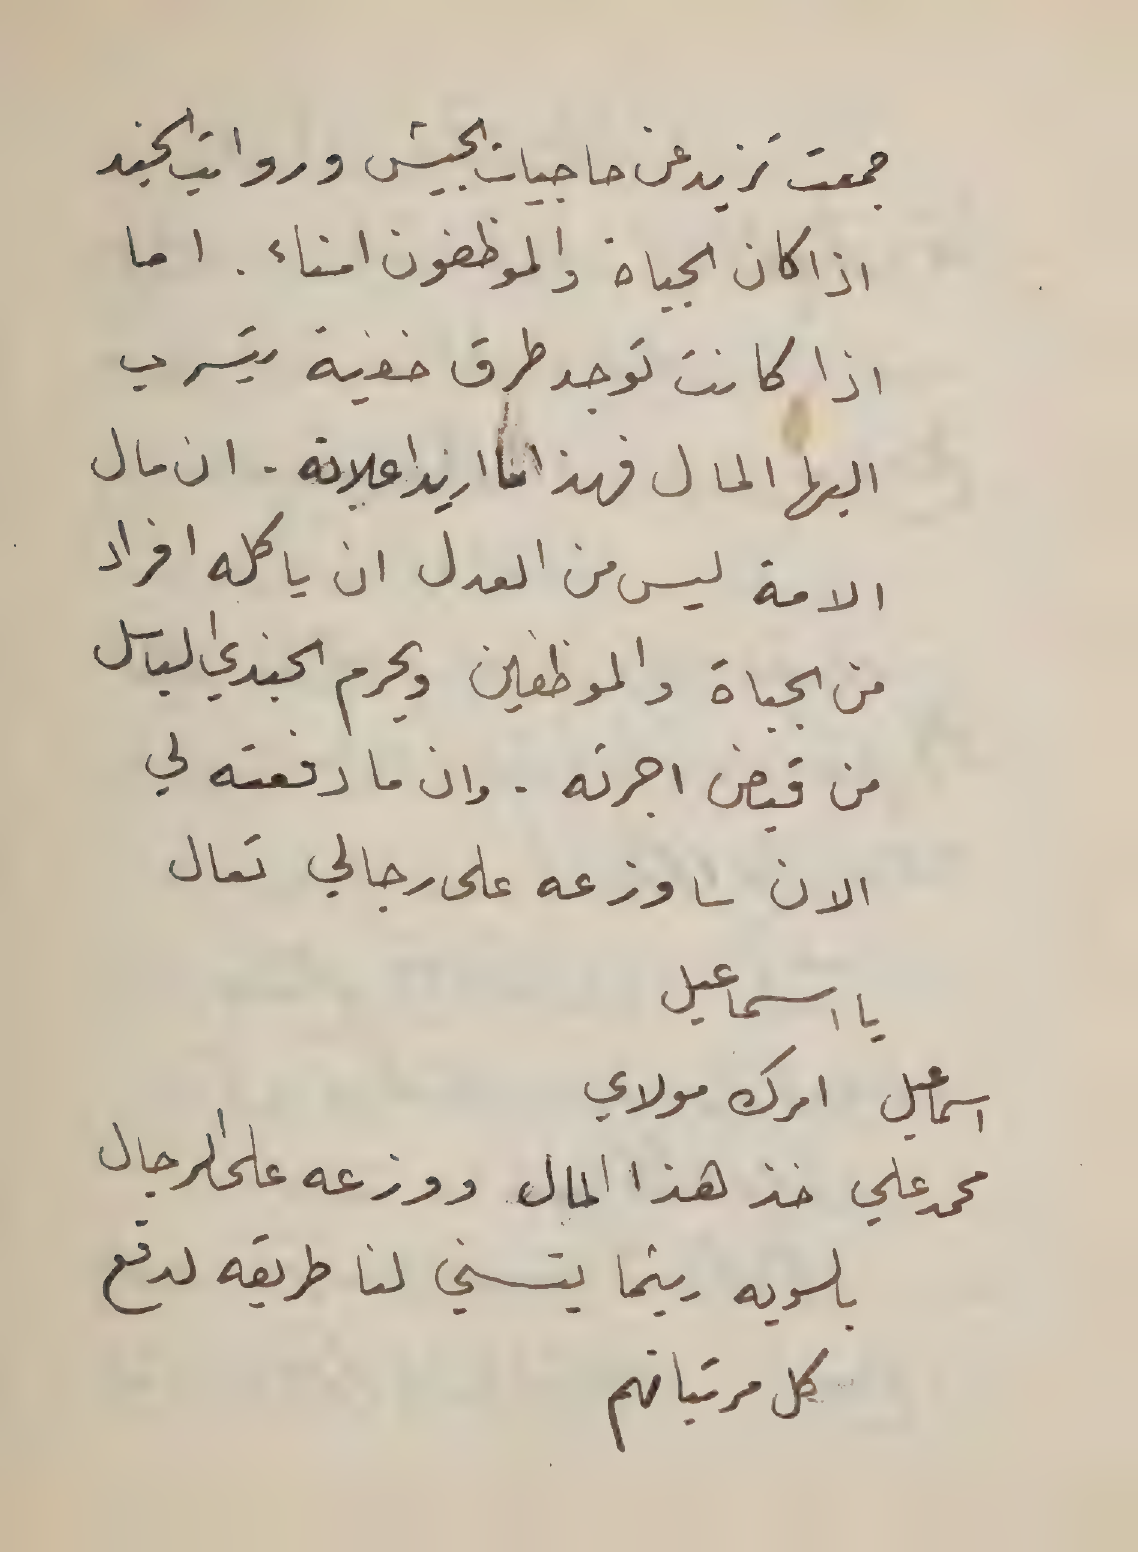 جمعت تزيد عن حاجيات الجيش ورواتب الجند
اذا كان الجباة والموظفون امناء . اما
اذا كانت توجد طرق خفية يتسرب
اليها المال فهذا ما اريد اعلانه . ان مال
الامة ليس من العدل ان ياكله افراد
من الجباة والموظفين ويحرم الجندي الباسل
من قبض اجرته . وان ما دفعته لي
الان ساوزعه على رجالي تعال
يا اسماعيل
اسماعيل امرك مولاي
محمد علي خذ هذا المال ووزعه على الرجال
بالسويه ريثما يتسنى لنا طريقه لدفع
كل مرتباتهم